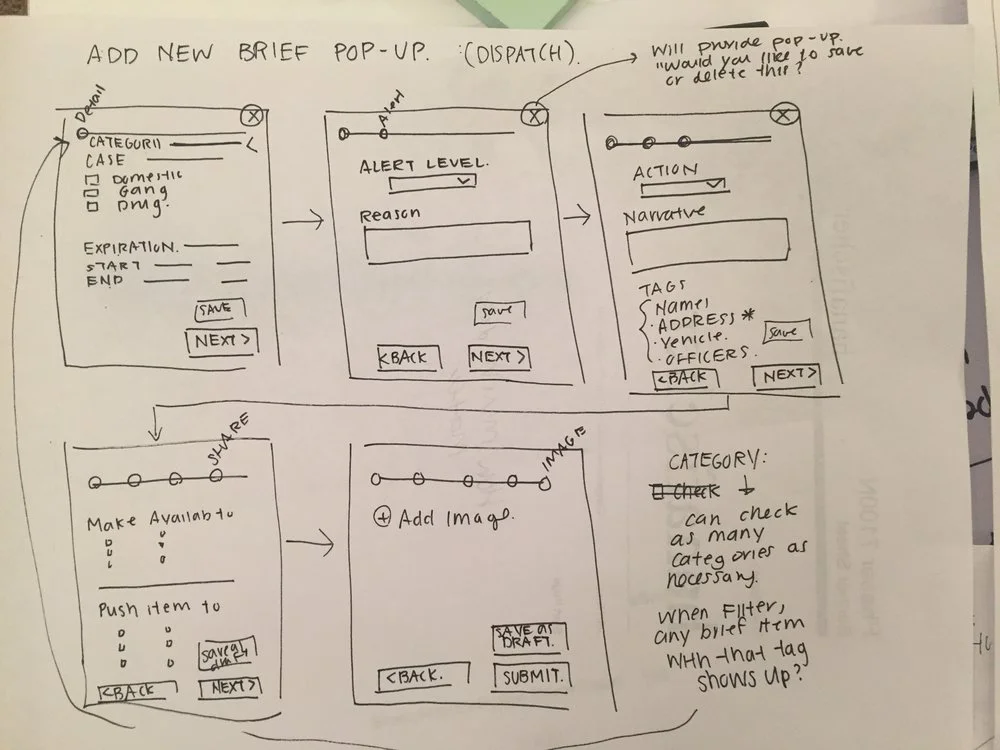 ADD NEW BRIEF POP-UP. :(DISPATCH).
Will provide pop-up.
"Would you like to save
or delete this"?
Detail
X
CATEGORY
CASE
Domestic
Gang
Drug.
EXPIRATION.
START
END
SAVE
NEXT >
Alert
X
ALERT LEVEL.
Reason
save
<BACK
NEXT >
X
ACTION
Narrative
TAGS
Names
ADDRESS *
Vehicle.
OFFICERS.
save
<BACK
NEXT>
SHARE
Make Availabto
Push item to
save as
draft
<BACK
NEXT>
IMAGE
+ Add Image.
SAVE as
DRAFT.
<BACK.
SUBMIT.
CATEGORY:
Check
can check
as many
categories as
necessary.
When Filter,
any brief item
with that tag
shows up?